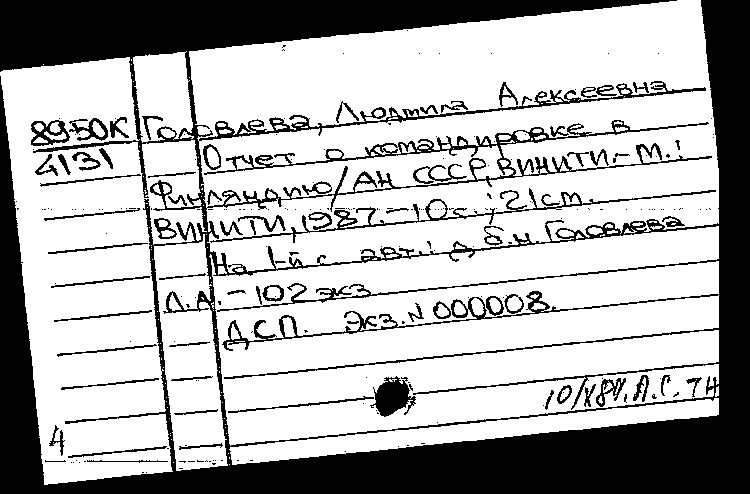 89-50К Головлева, Людмила Алексеевна
4131 Отчет о командировке в
Финляндию/АН СССР, ВИНИТИ.-М.:
ВИНИТИ, 1987.-10с.; 21см.
На 1-й с. авт.: д.б.н. Головлева
Л.А.-102 экз
ДСП. Экз. N 000008.
4